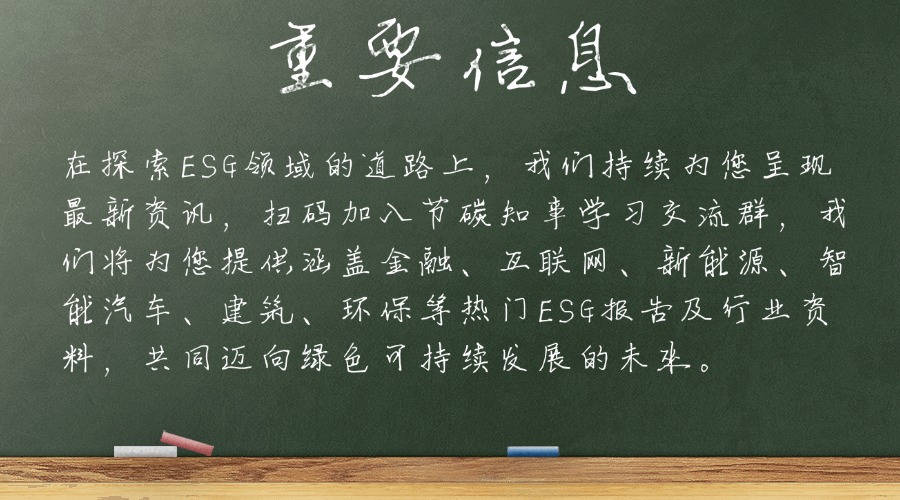 重要信息
在探索ESG领域的道路上，我们持续为您呈现
最新资讯，扫码加入节碳知事学习交流群，我
们将为您提供涵盖金融、互联网、新能源、智
能汽车、建筑、环保等热门ESG报告及行业资
料，共同迈向绿色可持续发展的未来。